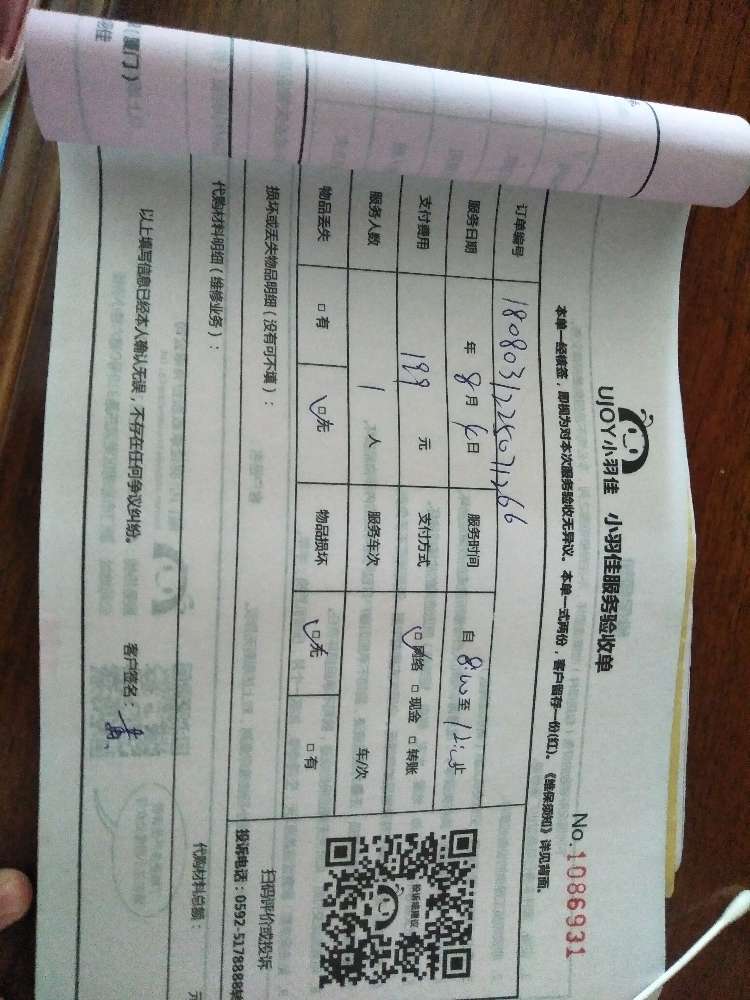 UJOY小羽佳 小羽佳服务验收单
No.1086931
本单一经核签，即视为对本次服务验收无异议。本单一式两份，客户留存一份(红)。《维保须知》详见背面。
订单编号 1808031225071266
服务日期 年 8月 6日 服务时间 自 8:00至 12:00止
支付费用 199 元 支付方式 □网络 □现金 □转账
服务人数 1 人 服务车次 车/次
物品丢失 □有 □无 物品损坏 □无 □有
损坏或丢失物品明细（没有可不填）：
扫码评价或投诉
投诉电话：0592-5178888转
代购材料明细（维修业务）：
代购材料总额： 元
以上填写信息已经本人确认无误，不存在任何争议纠纷。 客户签名：